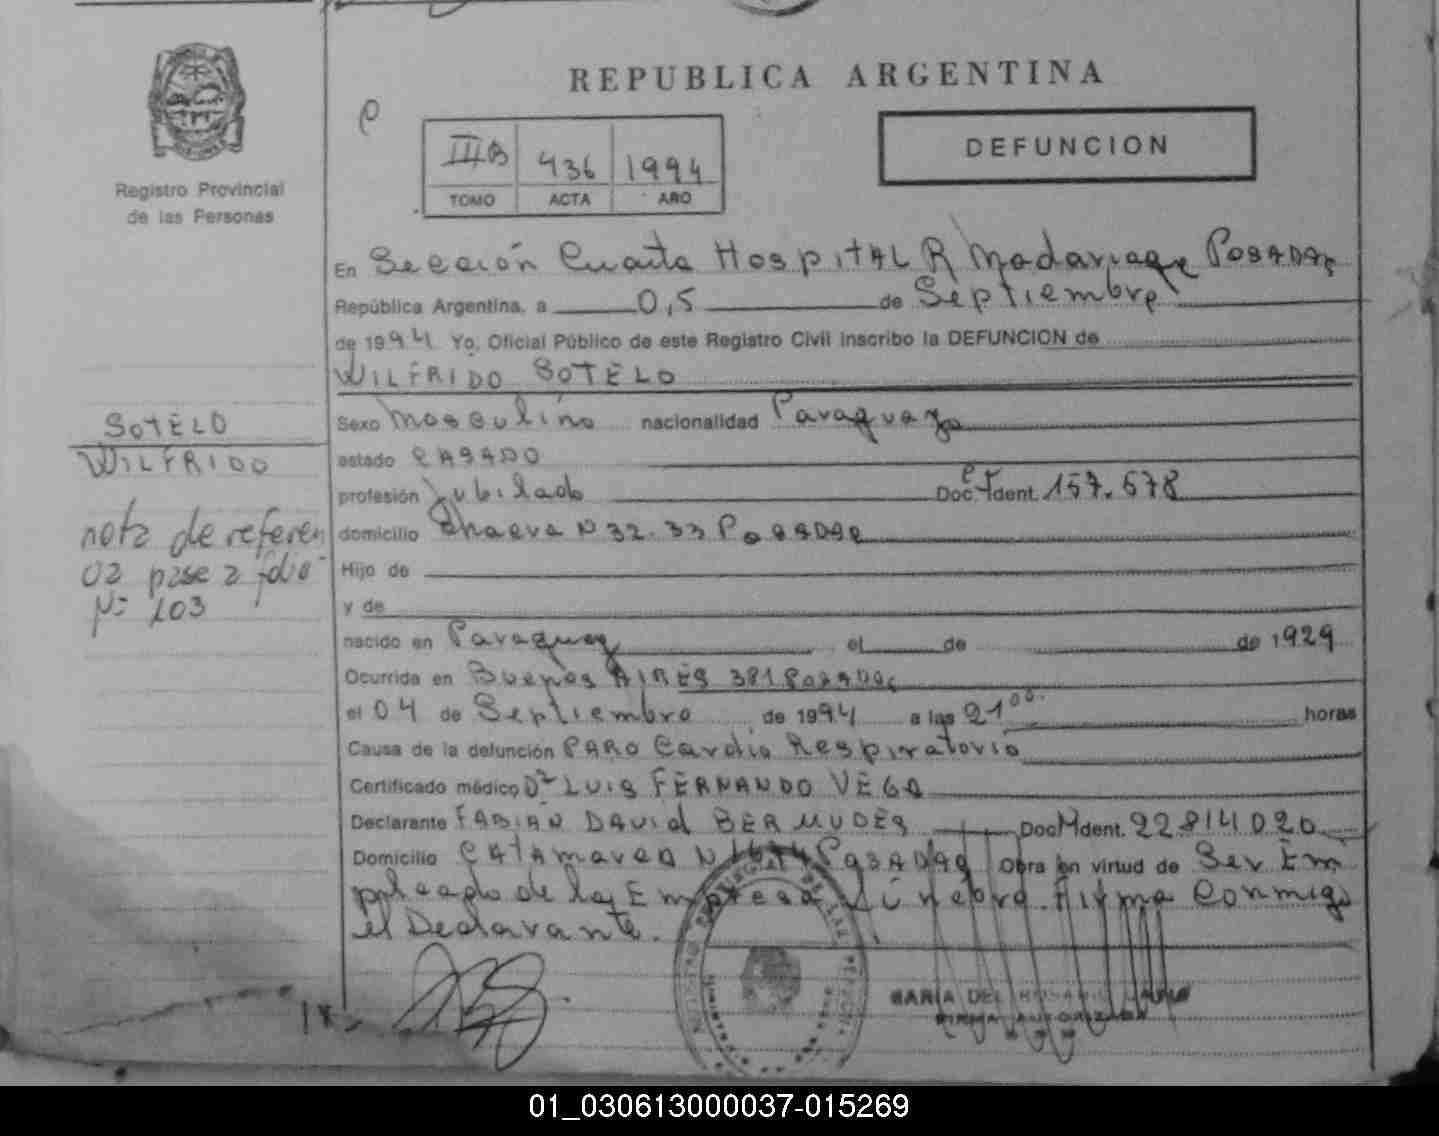 REPUBLICA ARGENTINA
Registro Provincial
de las Personas
III B 436 1994
TOMO ACTA AÑO
DEFUNCION
En Sección Cuarta HospITAL R Madariaga POSADAS
República Argentina, a 0,5 de Septiembre
de 1994 Yo, Oficial Público de este Registro Civil inscribo la DEFUNCION de
WILFRIDO SOTELO
SOTELO
WILFRIDO
nota de referen
cia pase a folio
Nº 103
Sexo Masculino nacionalidad Paraguaya
estado CASADO
profesión Jubilado Doc. Ident. 157.678
domicilio N 32.33 POSADAS
Hijo de
y de
nacido en Paraguay el de de 1929
Ocurrida en Buenos AIRES 381 POSADAS
el 04 de Septiembre de 1994 a las 21 00 horas
Causa de la defunción PARO Cardio Respiratorio
Certificado médico Dr LUIS FERNANDO VEGA
Declarante FABIÁN DAVID BERMUDES Doc. Ident. 22814020
Domicilio CATAMARCA N POSADAS Obra en virtud de Ser Em
pleado de la Empresa Fúnebre. Firma Conmigo
el Declarante.
MARIA DEL ROSARIO
FIRMA AUTORIZADA
01_030613000037-015269